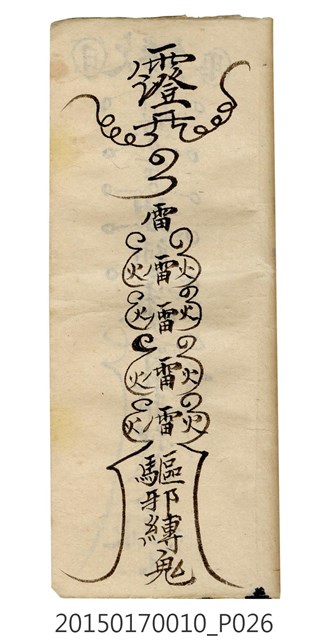 雷
火雷火
火雷火
火雷火
火雷火
驅邪縛鬼
20150170010_P026